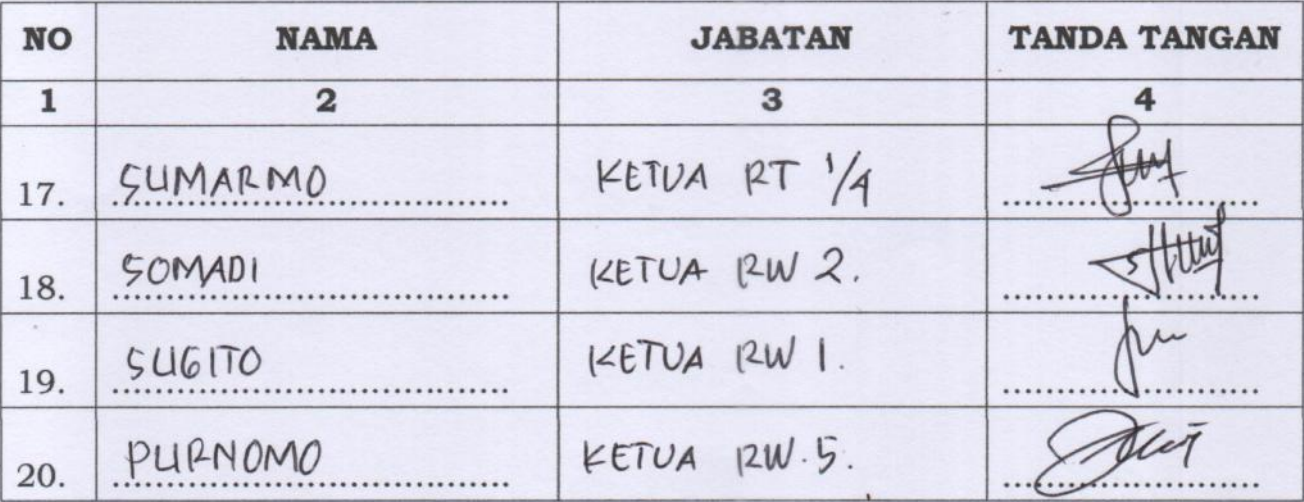 NO NAMA JABATAN TANDA TANGAN
1 2 3 4
17. SUMARMO KETUA RT 1/4
18. SOMADI KETUA RW 2.
19. SUGITO KETUA RW 1.
20. PURNOMO KETUA RW.5.